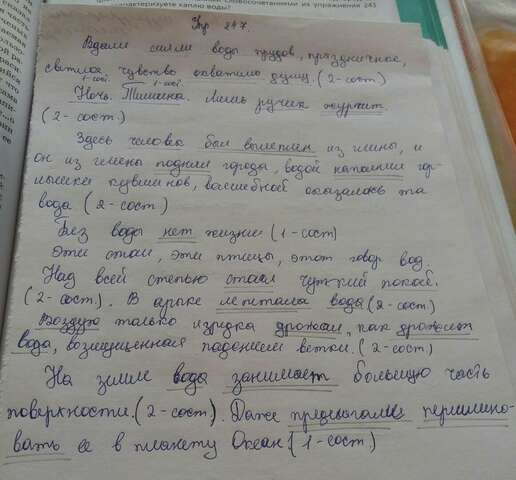 словосочетаниями из упражнения 243
характеризуете каплю воды?
Упр 247.
Вдали сияли воды прудов, праздничное,
светлое чувство охватило душу. (2-сост)
1-сост. 1-сост.
Ночь. Тишина. Лишь ручик журчит.
(2-сост.)
Здесь человек был вылеплен из глины, и
он из глины поднял города, водой наполнил гор-
лышки кувшинов, волшебной оказалась та
вода (2-сост)
Без воды нет жизни (1-сост)
Эти стаи, эти птицы, этот говор вод.
Над всей степью стоял чуткий покой.
(2-сост.). В арыке лепетала вода (2-сост.)
Воздух только изредка дрожал, как дрожала
вода, возмущенная падением ветки. (2-сост)
На земле вода занимает большую часть
поверхности. (2-сост). Даже предлагали переимено-
вать ее в планету Океан. (1-сост)